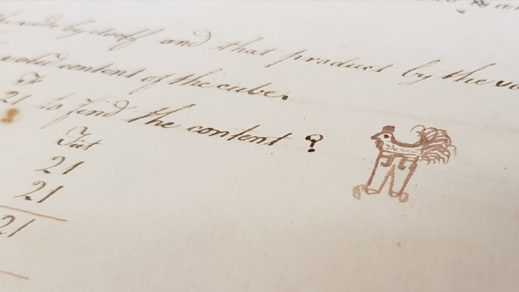 the side by itself and that product by the
solid content of the cube.
21 to find the content?
Fut
21
21
21